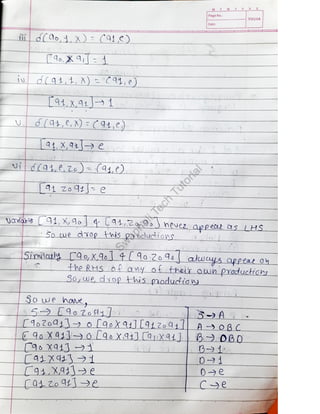 M T W T F S S
Page No.:
Date:
YOUVA
iii δ(q0, 1, x) = (q1, e)
[q0, x q1] = 1
iv δ(q1, 1, x) = (q1, e)
[q1, x, q1] → 1
v. δ(q1, e, x) = (q1, e)
[q1, x, q1] → e
vi δ(q1, e, z0) = (q1, e)
[q1 z0 q1] = e
Variable [q1, x, q0] & [q1, z0, q0] never appear as LHS
So we drop this productions
Similarly [q0, x, q0] & [q0 z0 q0] always appear on
the RHS of any of their own productions
So, we drop this productions
So we have,
S → [q0 z0 q1]
[q0 z0 q1] → 0 [q0 x q1] [q1 z0 q1]
[q0 x q1] → 0 [q0 x q1] [q1 x q1]
[q0 x q1] → 1
[q1 x q1] → 1
[q1, x q1] → e
[q1 z0 q1] → e
S → A
A → 0BC
B → 0BD
B → 1
D → 1
D → e
C → e
Tech Tutorial